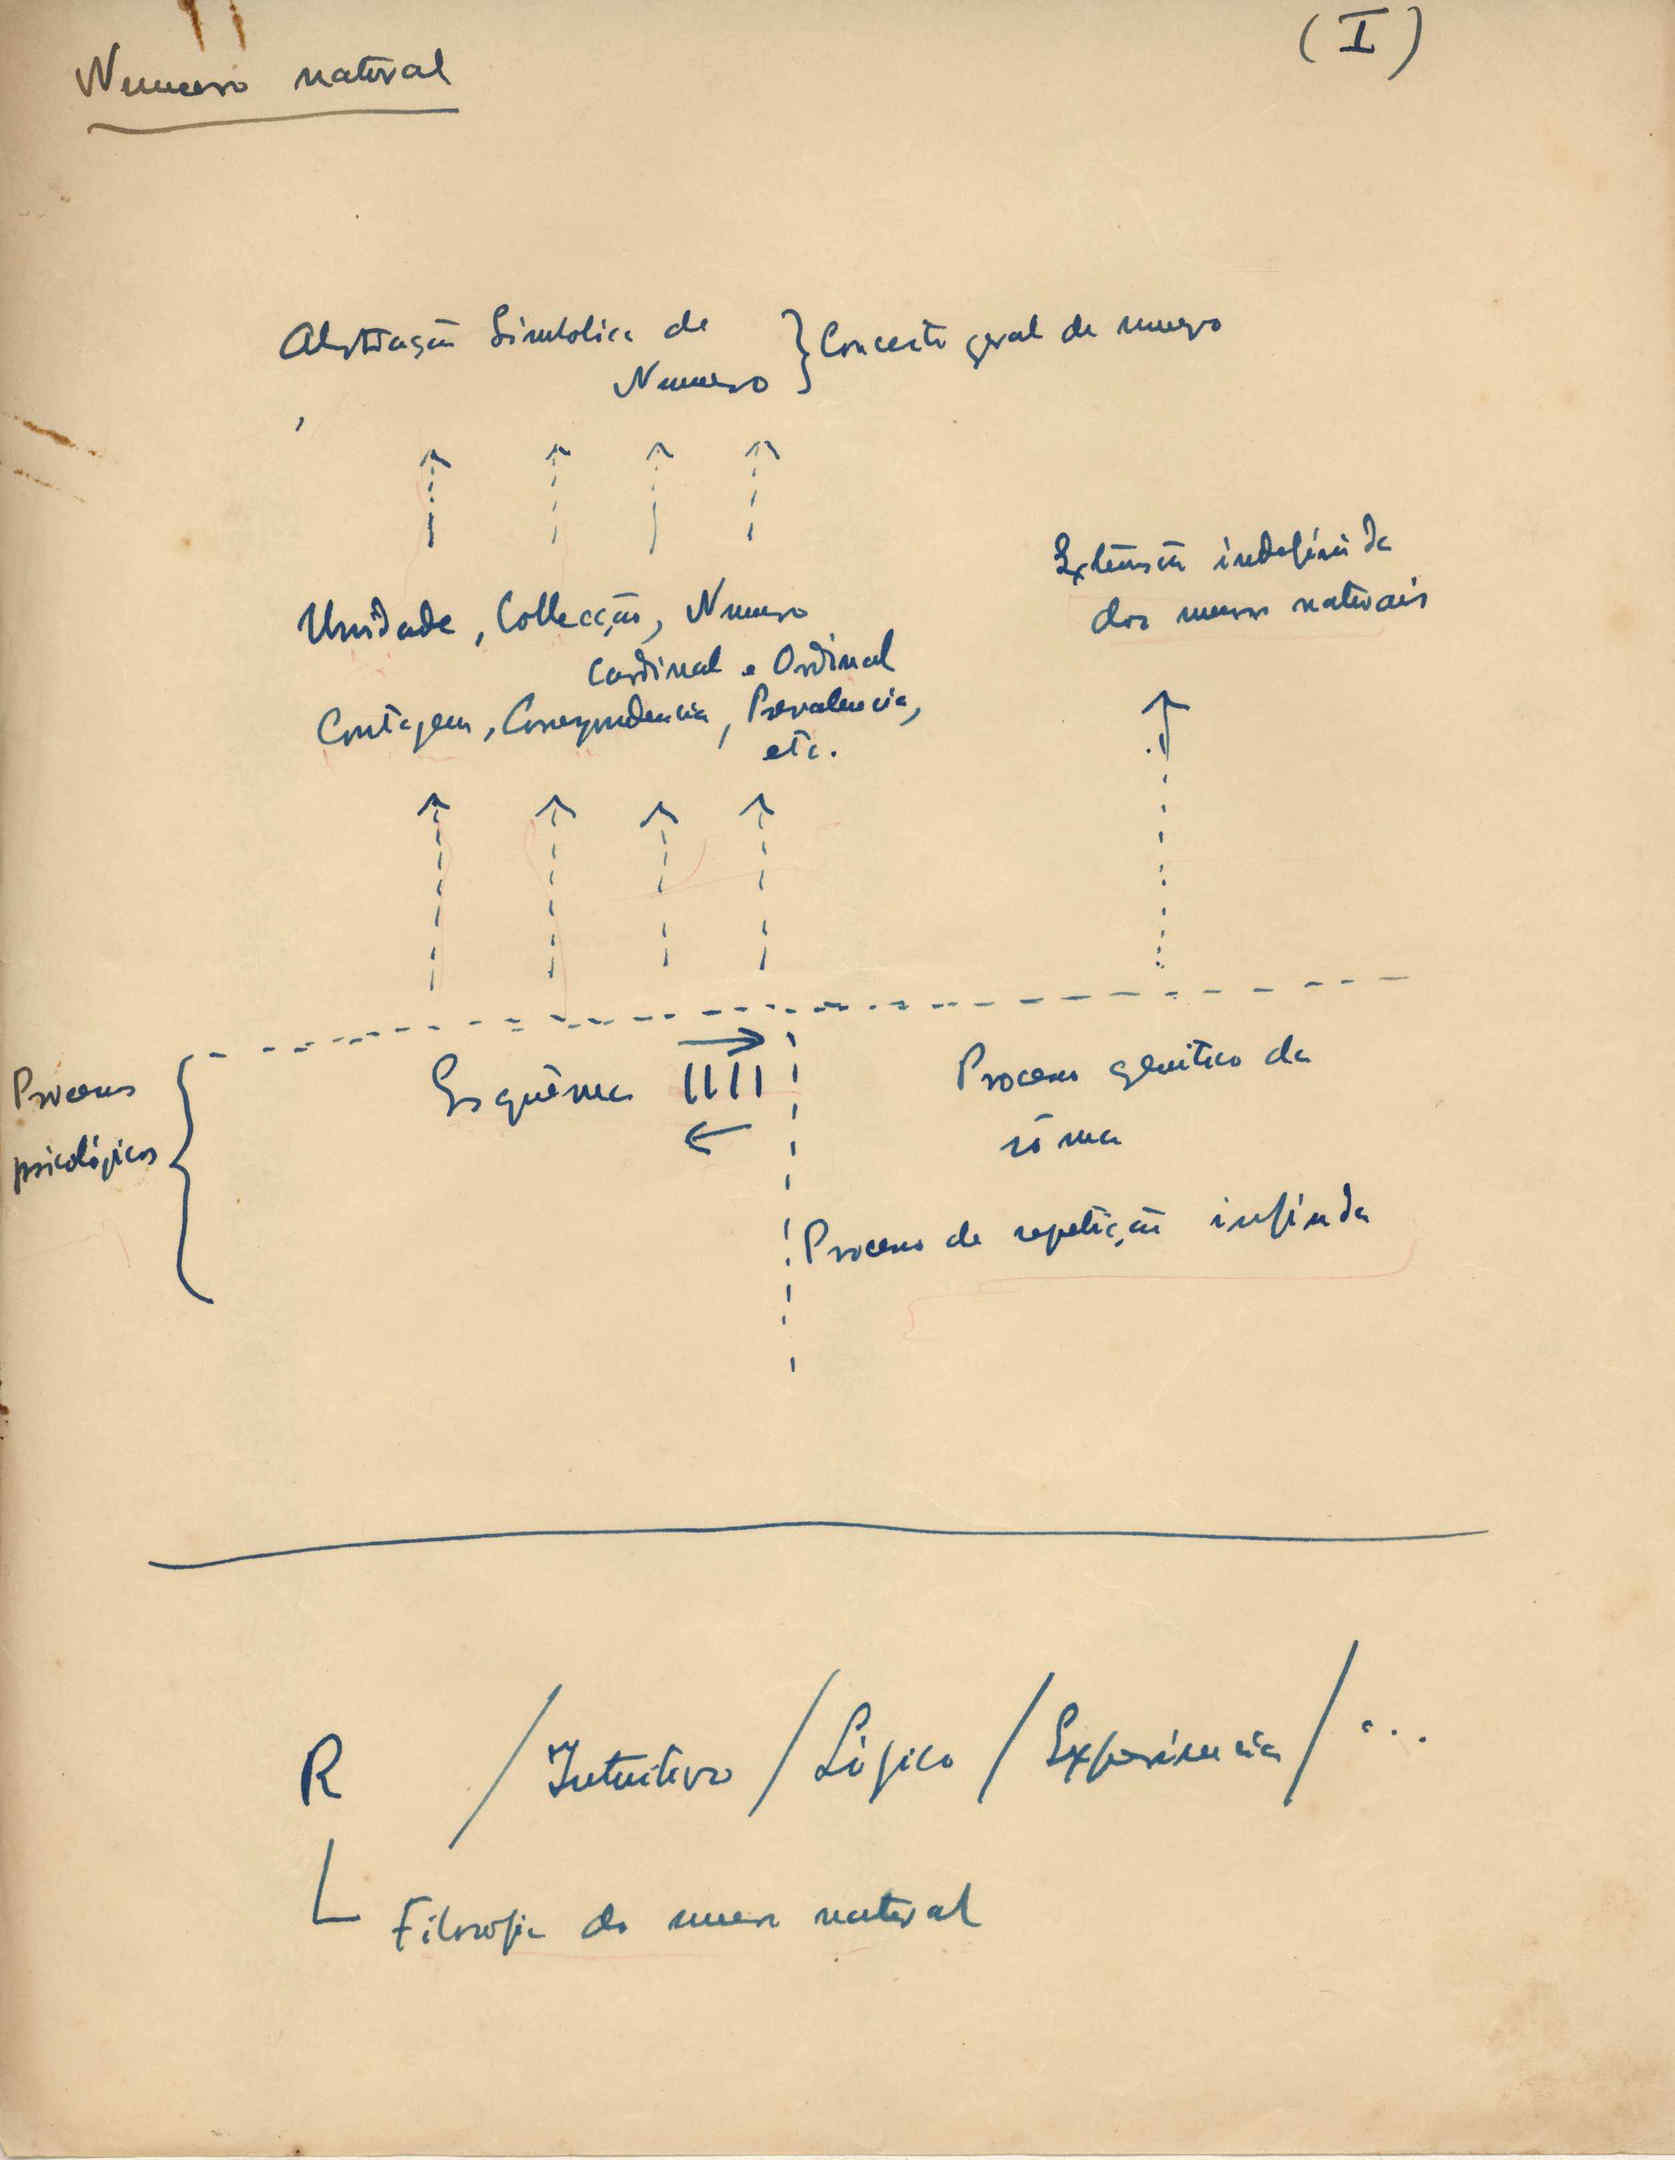 (I)
Numero natural
Abstração Simbolica de
Numero
Conceito geral de numero
Extensão indefinida
dos numeros naturais
Unidade, Collecção, Numero
Cardinal e Ordinal
Contagem, Correspondencia, Prevalencia,
etc.
Processos
psicológicos
Esquêma
Processo genético da
Processo de repetição infinda
R / Intuitivo / Lógico / Experiencia / ...
Filosofia do numero natural